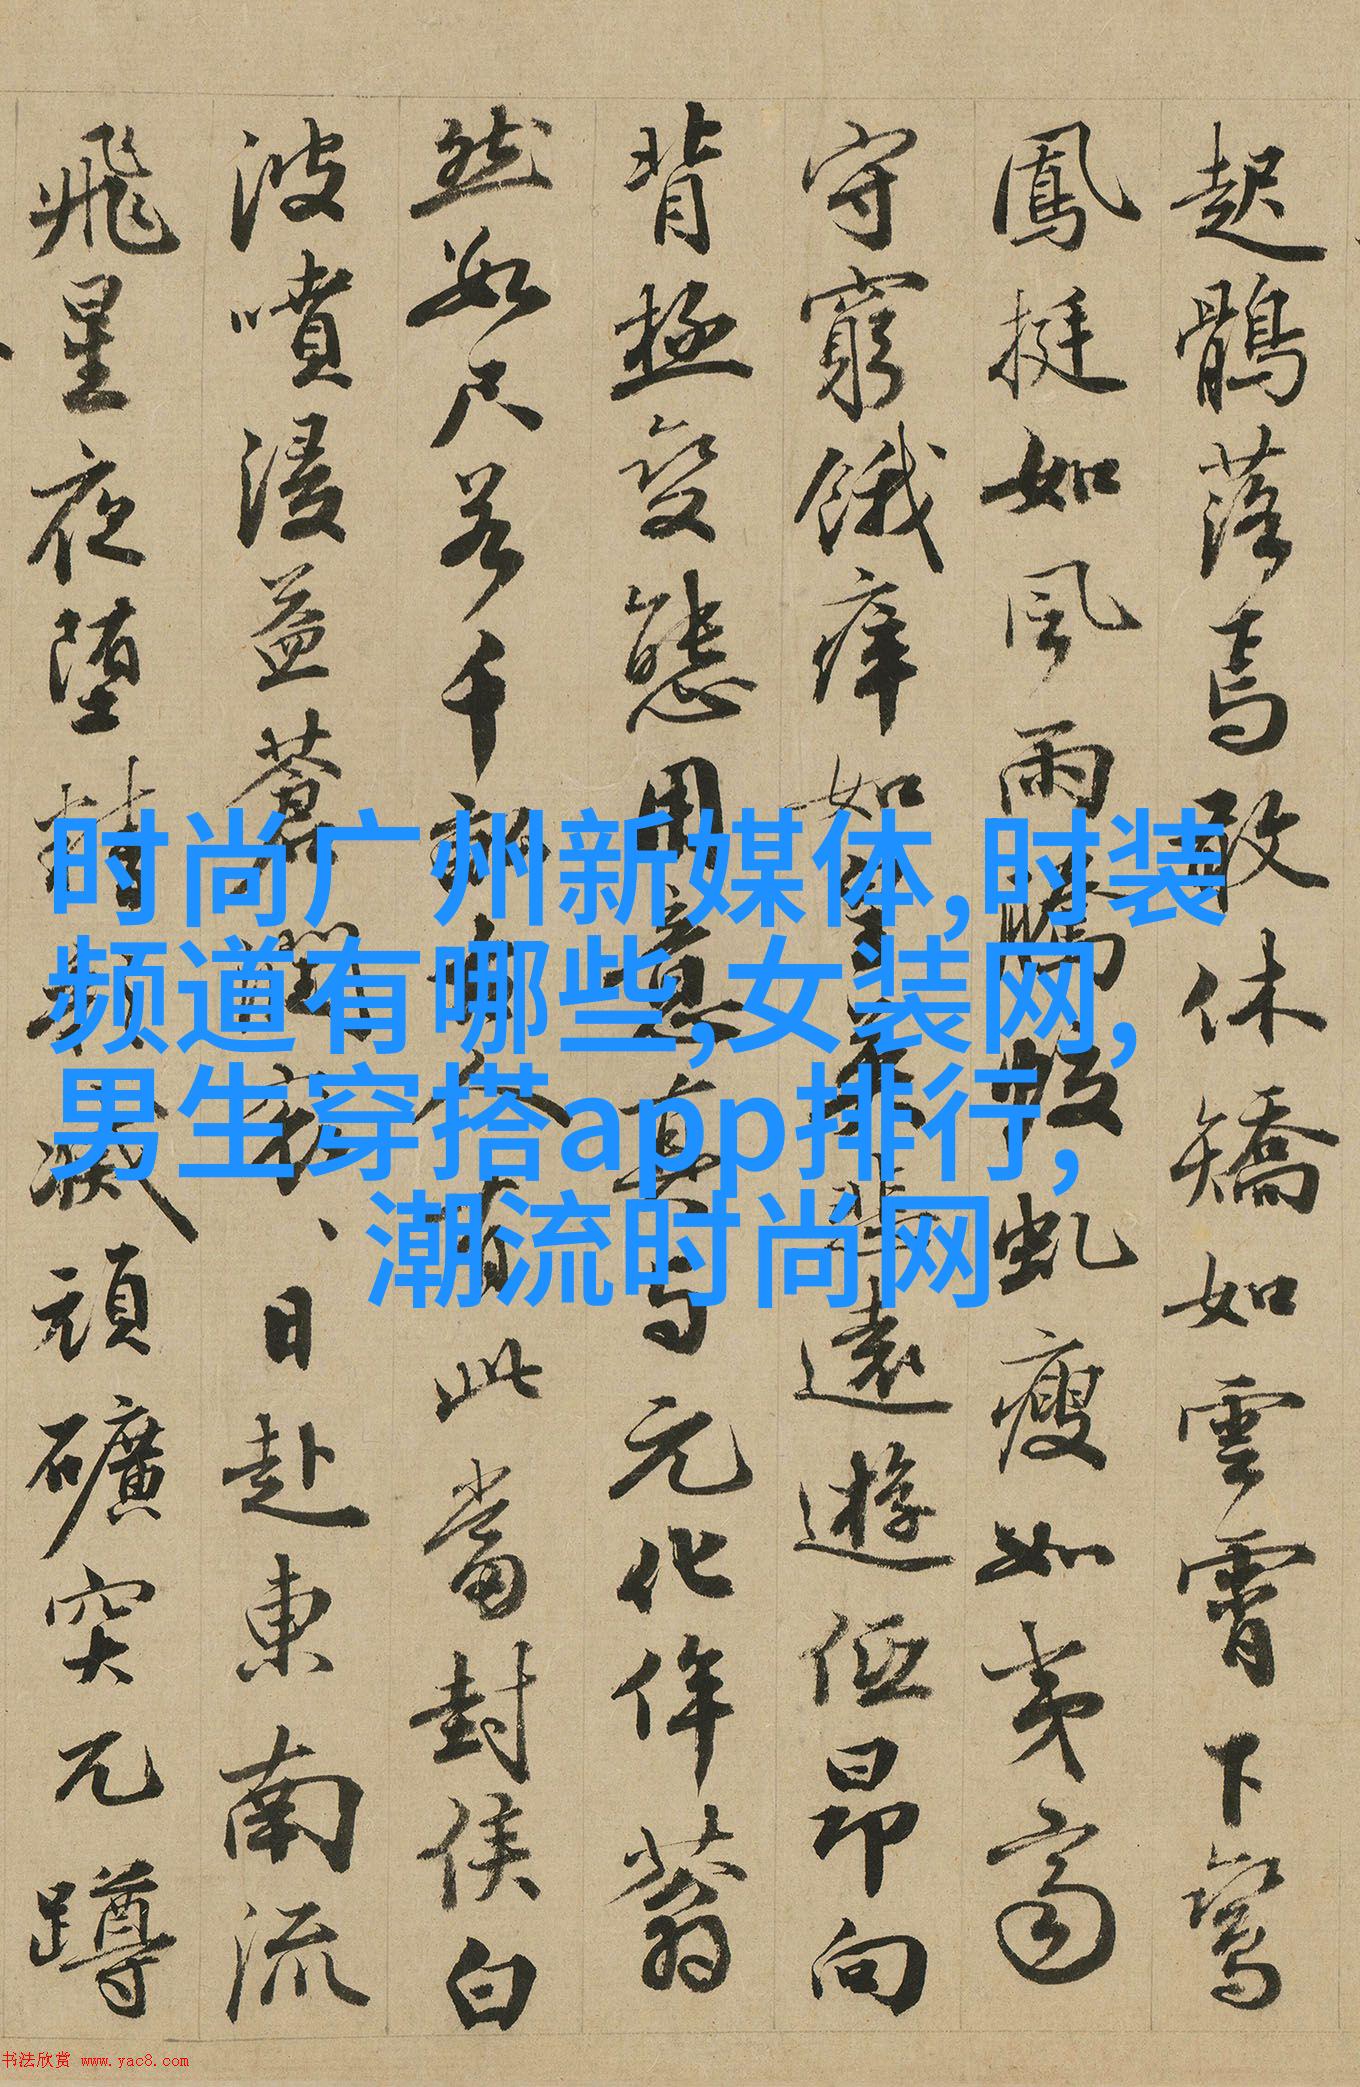 起鶻落焉敢休矯如雲霄下鸞
鳳挺如風雨騰虬瘦如夷齊
守窮餓如遠遊低昂向
背極變態用意真与元化侔蓊
然数尺若千有此當封侯白
波噴浸益蒼日赴東南流
飛星夜堕滅頑礦突兀蹲
时尚广州新媒体,时装
频道有哪些,女装网,
男生穿搭app排行,
潮流时尚网
书法欣赏 www.yac8.com